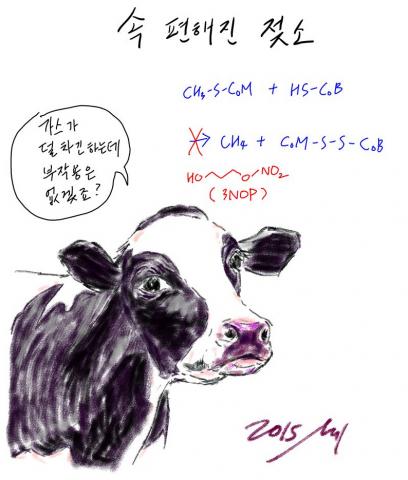 속 편해진 젖소
CH₃-S-CoM + HS-CoB
→ CH₄ + CoM-S-S-CoB
HO O NO₂
(3NOP)
가스가
덜 차긴 하는데
부작용은
없겠죠?
2015